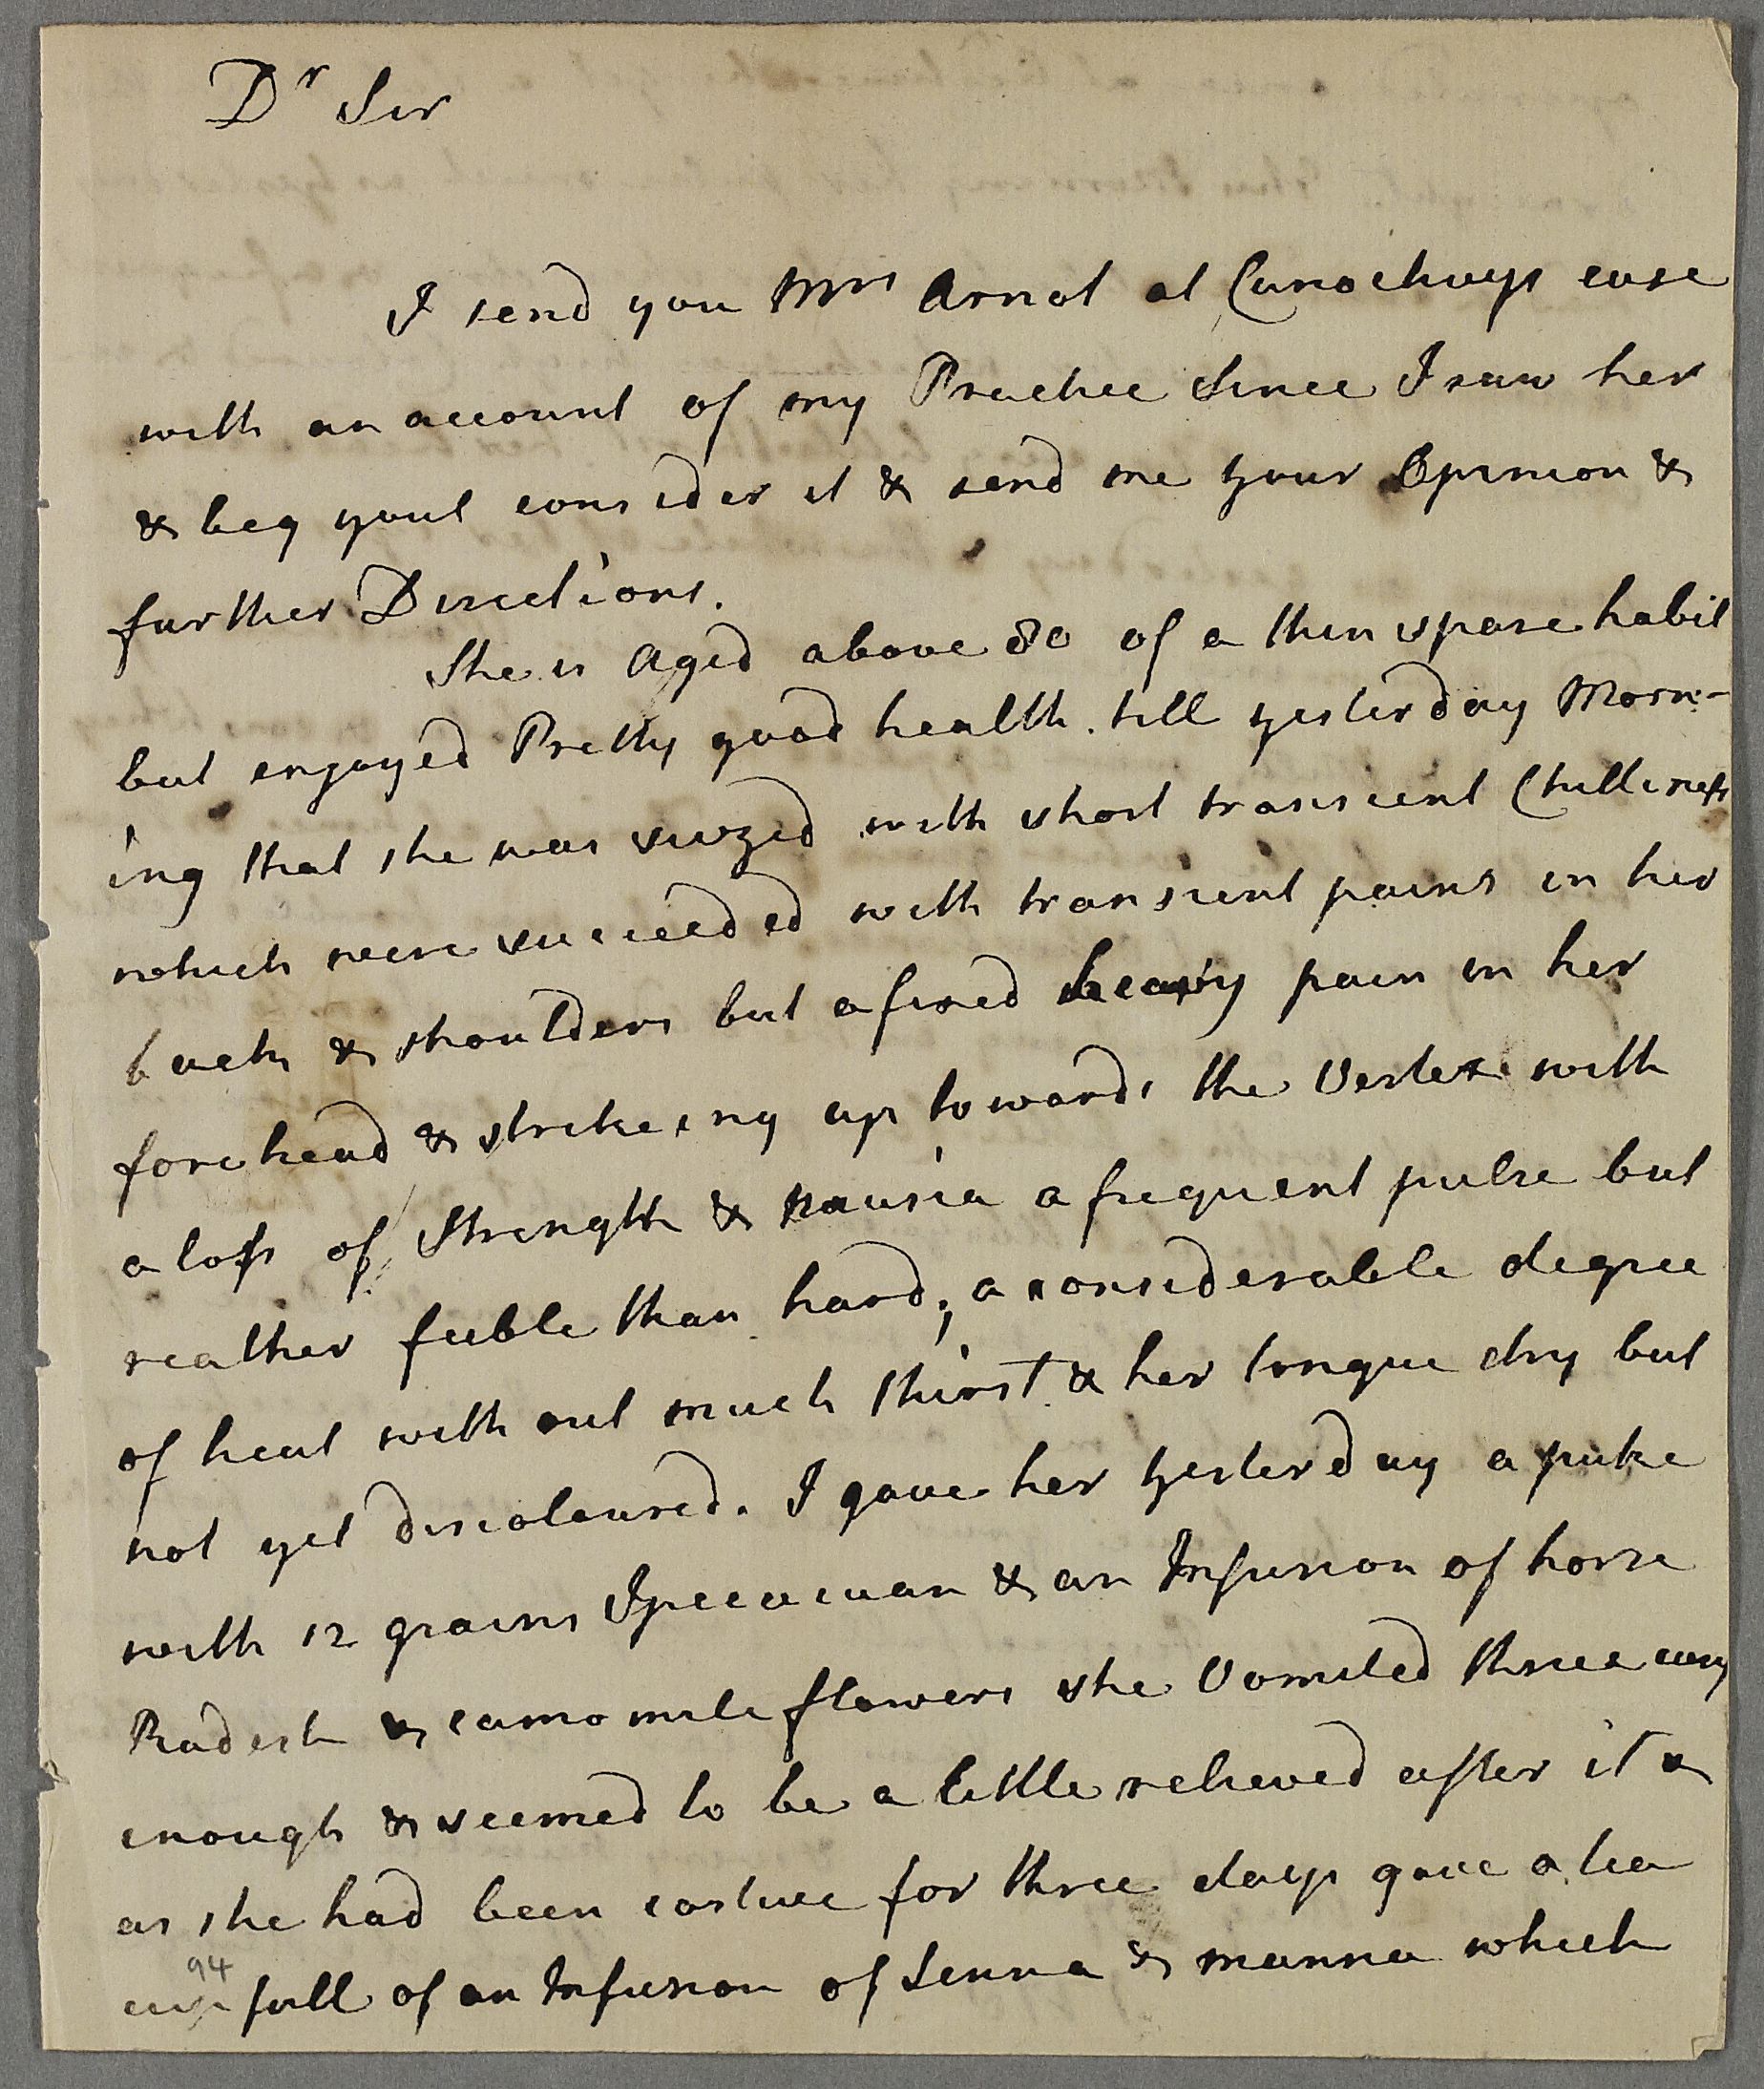 Dr Sir
I send you Mrs Arnot at Carnochuys case
with an account of my Practice Since I saw her
& beg youl consider it & send me your Opinion &
further Directions.
She is Aged above 80 of a thin spare habit
but enjoyed Pretty good health till yesterday Morn-
ing that she was siezed with short transient Chilliness
which were succeeded with transient pains in her
back & shoulders but a fixed heavy pain in her
forehead & strikeing up towards the Vertex with
a loss of Strength & nausia a frequent pulse but
reather feeble than hard; a considerable degree
of heat with out much thirst & her tongue dry but
not yet discoloured. I gave her yesterday a puke
with 12 grains Ipecacuan & an Infusion of horse
Radish & camomile flowers she Vomited thrice easy
enough & seemed to be a little relieved after it &
as she had been costive for three days gave a tea
94
cup full of an Infusion of Senna & manna which